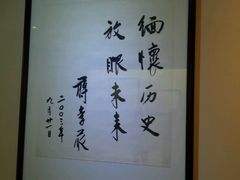 缅懷历史
放眼未来
二〇〇三年
九月廿一日